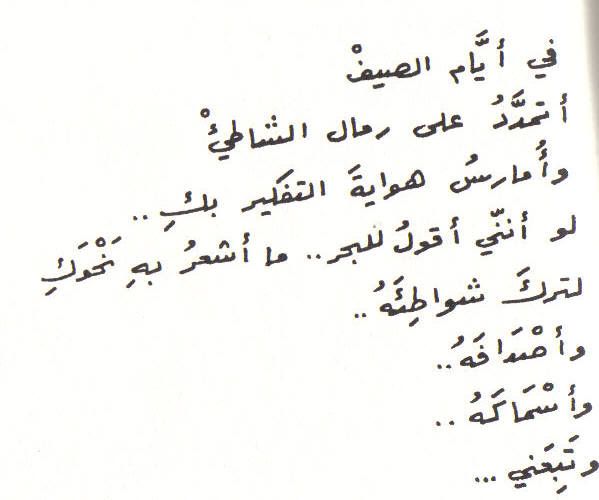 في أيَّام الصيفْ
أتمدَّدُ على رمال الشاطئْ
وأُمارسُ هوايةَ التفكير بكِ ..
لو أنّني أقولُ للبحر .. ما أشعرُ بهِ نَحْوَكِ
لتركَ شواطِئَهُ ..
وأصْدَافَهُ ..
وأسْمَاكَهُ ..
وتَبِعَني ...